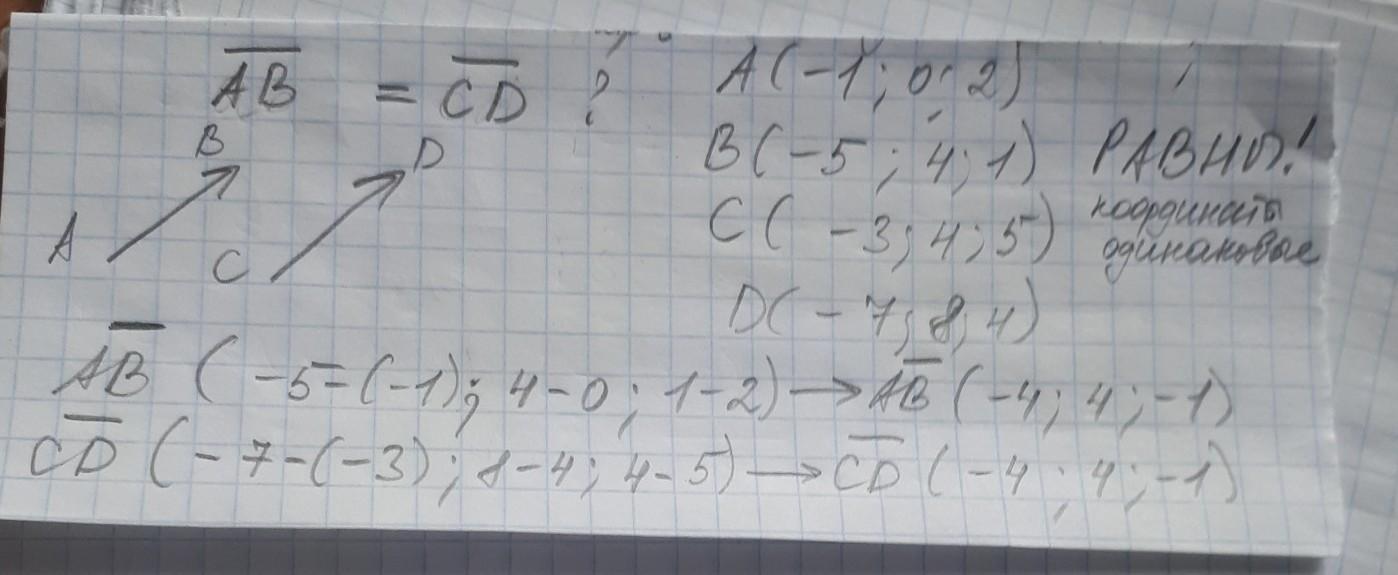 AB = CD ?
A(-1; 0; 2)
B(-5; 4; 1) РАВНЫ!
координаты
одинаковые
C(-3; 4; 5)
D(-7; 8; 4)
B
D
A
C
AB (-5-(-1); 4-0; 1-2) → AB (-4; 4; -1)
CD (-7-(-3); 8-4; 4-5) → CD (-4; 4; -1)